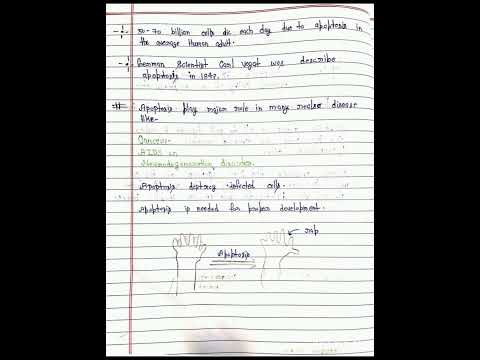 50-70 billion cells die each day due to apoptosis in
the average Human adult.
German Scientist Carl vogat was describe
apoptosis in 1842.
# Apoptosis play major role in many disease
like-
Cancer-
AIDS
Neurodegenerative disorders.
Apoptosis destroy infected cells.
Apoptosis is needed for proper development.
Apoptosis